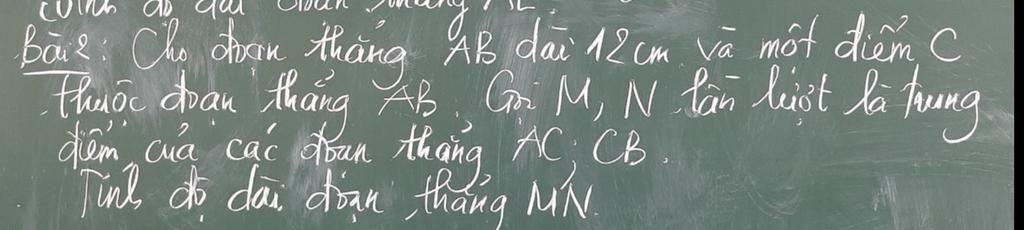 Tính độ dài đoạn thẳng AE.
Bài 2: Cho đoạn thẳng AB dài 12 cm và một điểm C
thuộc đoạn thẳng AB. Gọi M, N lần lượt là trung
điểm của các đoạn thẳng AC, CB.
Tính độ dài đoạn thẳng MN.